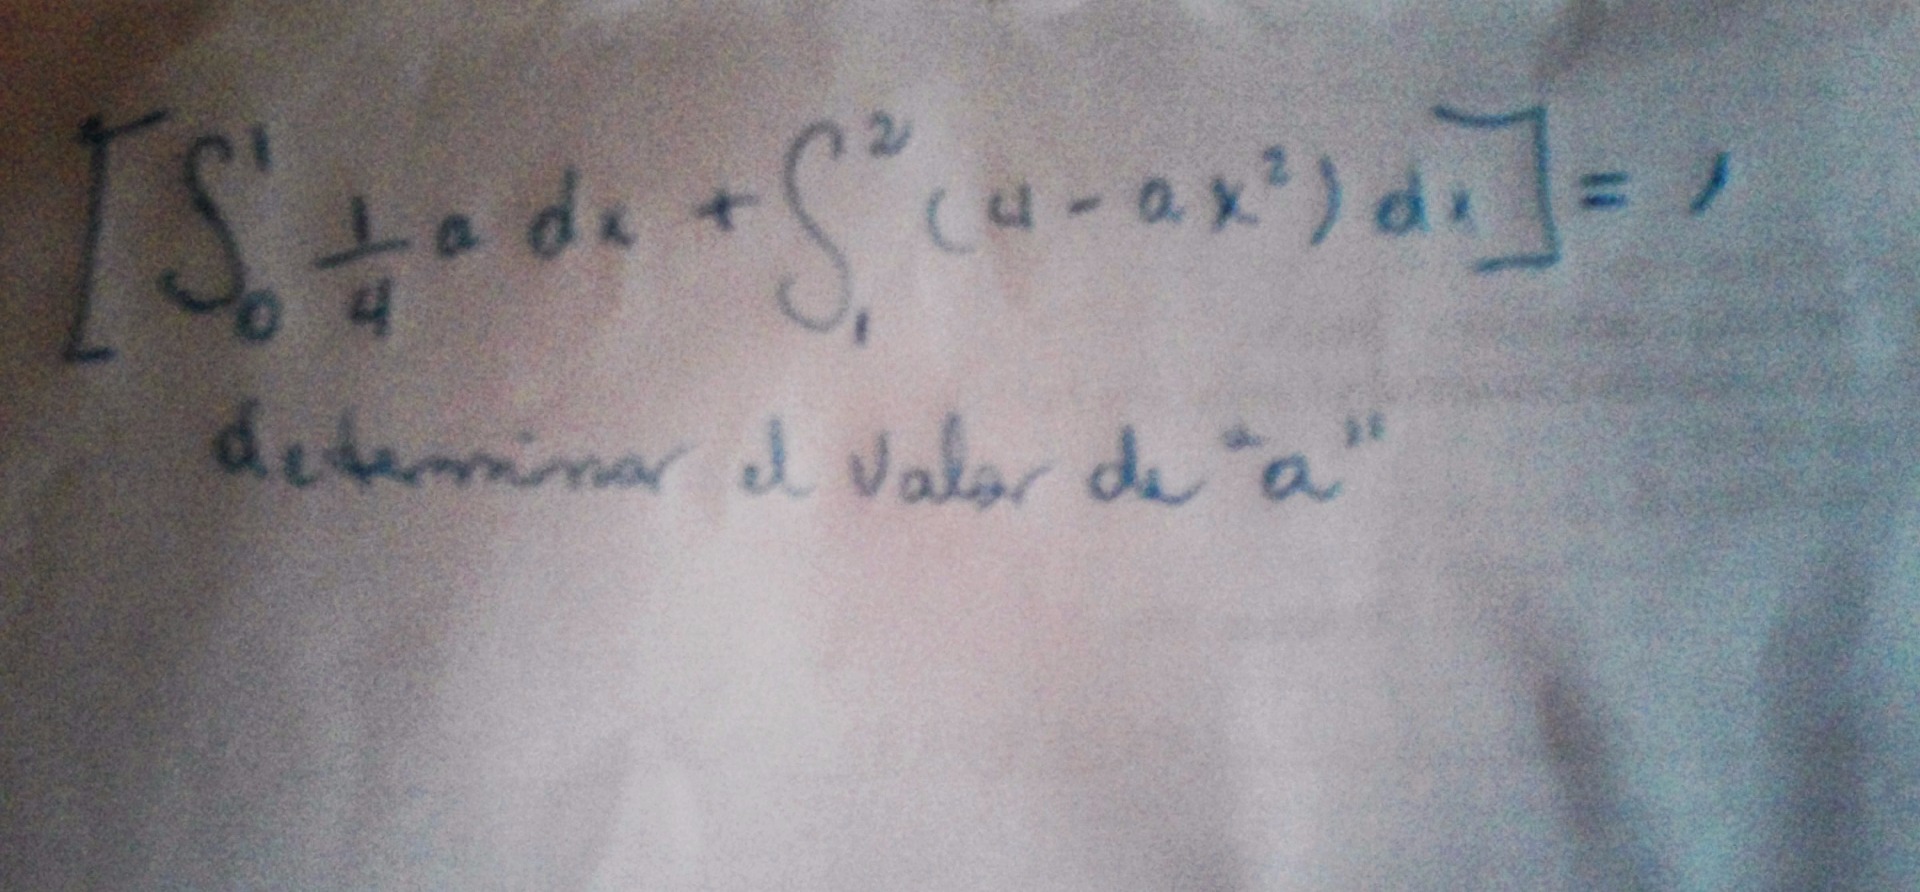 [∫₀¹ 1/4 a dx + ∫₁² (4 - ax²) dx] = 1
determinar el valor de "a"